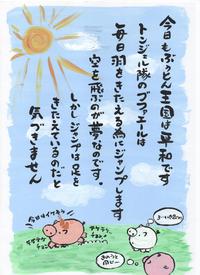 今日もぶーとん王国は平和です
トンジル隊の
毎日羽をきたえる為にジャンプします
空を飛ぶのが夢なのです。
しかしジャンプは足を
きたえているのだと
気づきません